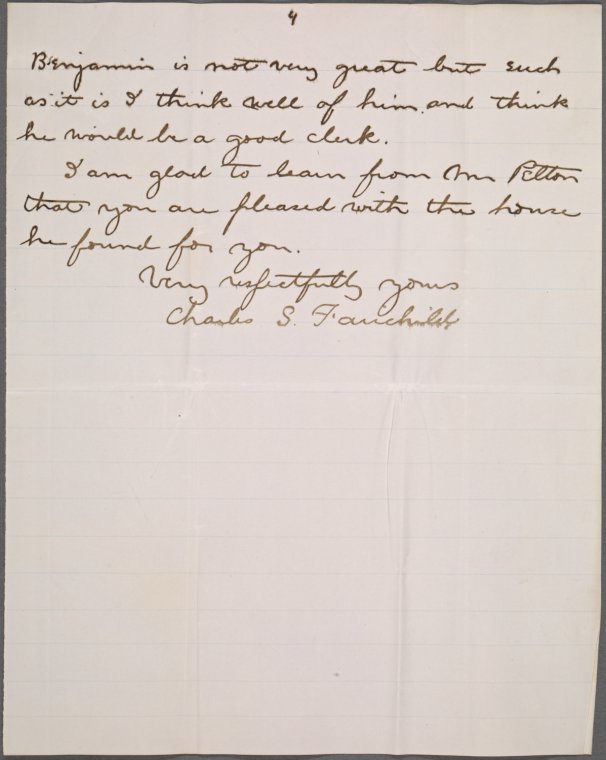 4
Benjamin is not very great but such
as it is I think well of him and think
he would be a good clerk.
I am glad to learn from Mr Pelton
that you are pleased with the house
he found for you.
Very respectfully yours
Charles S. Fairchild